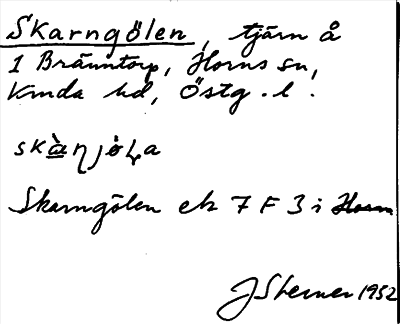 Skarngölen, tjärn å
1 Bränntorp, Horns sn,
Kinda hd, Östg. l.
Skarngölen ek 7 F 3 i Horn
J Sterner 1952